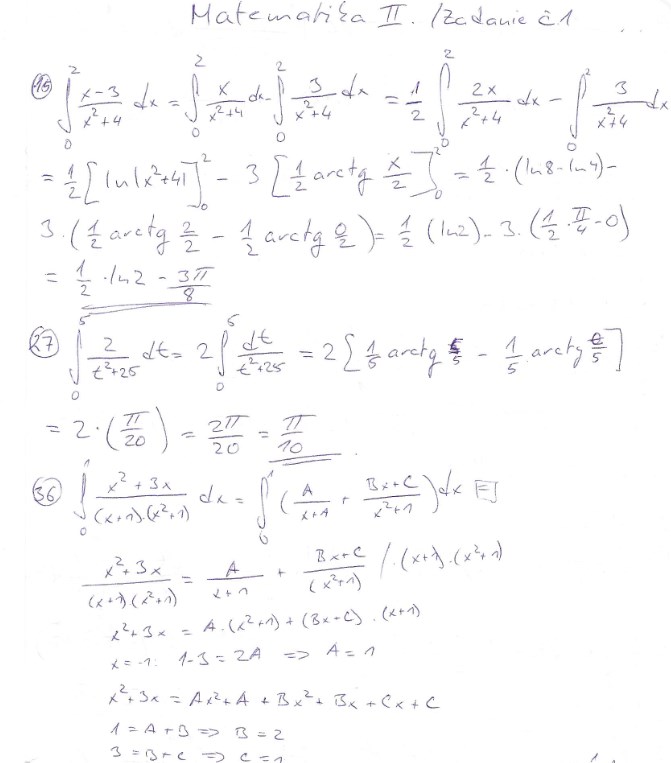 Matematika II. /Zadanie č1
15 ∫₀² (x-3)/(x²+4) dx = ∫₀² x/(x²+4) dx - ∫₀² 3/(x²+4) dx = 1/2 ∫₀² 2x/(x²+4) dx - ∫₀² 3/(x²+4) dx
= 1/2 [ln|x²+4|]₀² - 3 [1/2 arctg x/2]₀² = 1/2 · (ln8 - ln4) -
3 · (1/2 arctg 2/2 - 1/2 arctg 0/2) = 1/2 (ln2) - 3 · (1/2 · π/4 - 0)
= 1/2 · ln2 - 3π/8
27 ∫₀⁵ 2/(t²+25) dt = 2 ∫₀⁵ dt/(t²+25) = 2 [1/5 arctg 5/5 - 1/5 arctg 0/5]
= 2 · (π/20) = 2π/20 = π/10
36 ∫₀¹ (x²+3x)/((x+1)·(x²+1)) dx = ∫₀¹ (A/(x+1) + (Bx+C)/(x²+1)) dx
(x²+3x)/((x+1)(x²+1)) = A/(x+1) + (Bx+C)/(x²+1) /·(x+1)·(x²+1)
x²+3x = A·(x²+1) + (Bx+C)·(x+1)
x=-1: 1-3 = 2A => A = 1
x²+3x = Ax²+A + Bx² + Bx + Cx + C
1 = A + B => B = 2
3 = B + C => C = 1